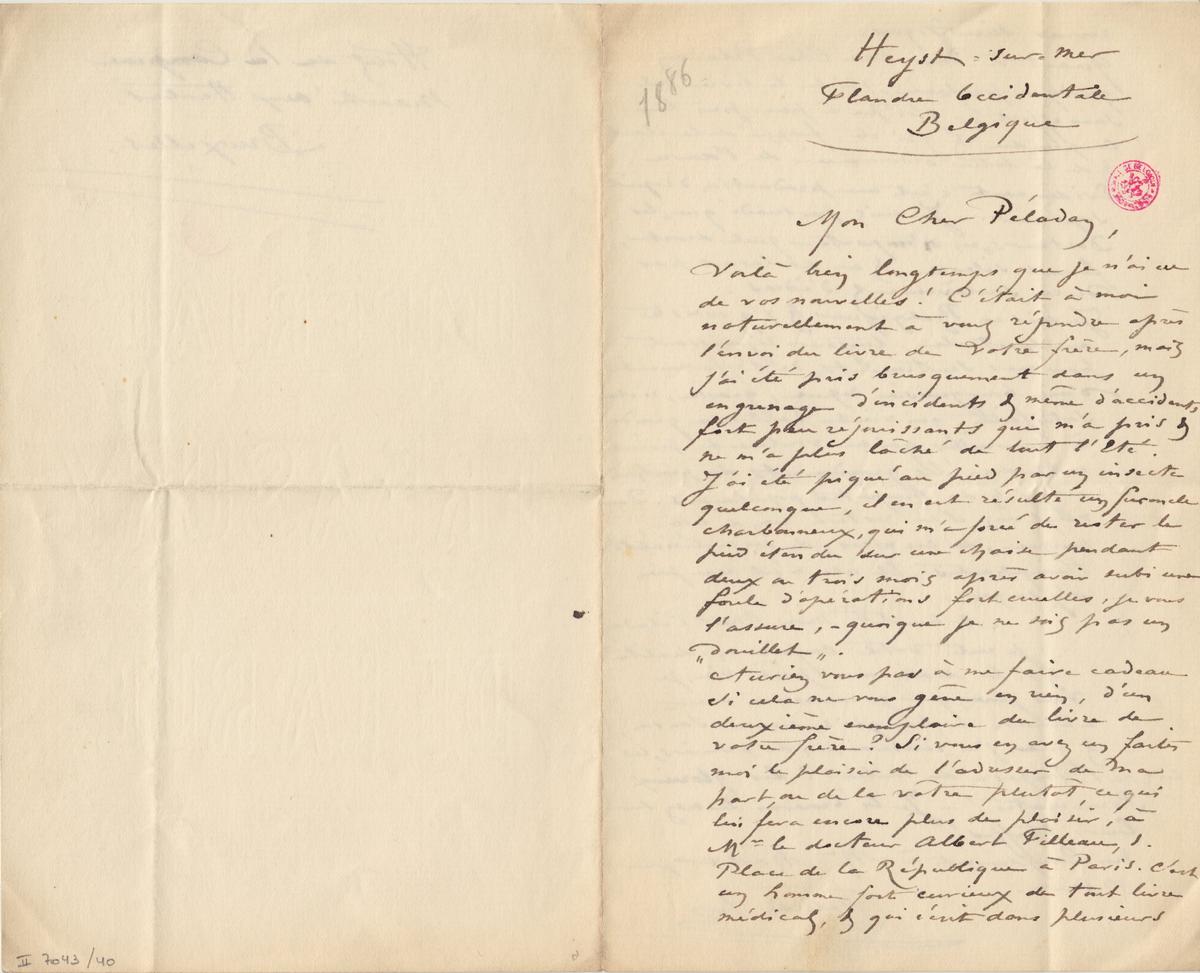 1886
Heyst-sur-Mer
Flandre Occidentale
Belgique
Mon Cher Péladan,
Voilà bien longtemps que je n'ai eu
de vos nouvelles! C'était à moi
naturellement à vous répondre après
l'envoi du livre de votre frère, mais
j'ai été pris brusquement dans un
engrenage d'incidents & même d'accidents
fort peu réjouissants qui m'a pris &
ne m'a plus lâché de tout l'Eté.
J'ai été piqué au pied par un insecte
quelconque, il en est résulté un furoncle
charbonneux, qui m'a forcé de rester le
pied étendu sur une chaise pendant
deux ou trois mois après avoir subi une
foule d'opérations fort cruelles, je vous
l'assure, - quoique je ne sois pas un
"douillet".
Auriez vous pas à me faire cadeau
si cela ne vous gêne en rien, d'un
deuxième exemplaire du livre de
votre frère? Si vous en avez un faites
moi le plaisir de l'adresser de ma
part, ou de la vôtre plutôt, ce qui
lui fera encore plus de plaisir, à
Mr le docteur Albert Filleau, 1.
Place de la République à Paris. C'est
un homme fort curieux de tout livre
médical, & qui écrit dans plusieurs
II 7043/40